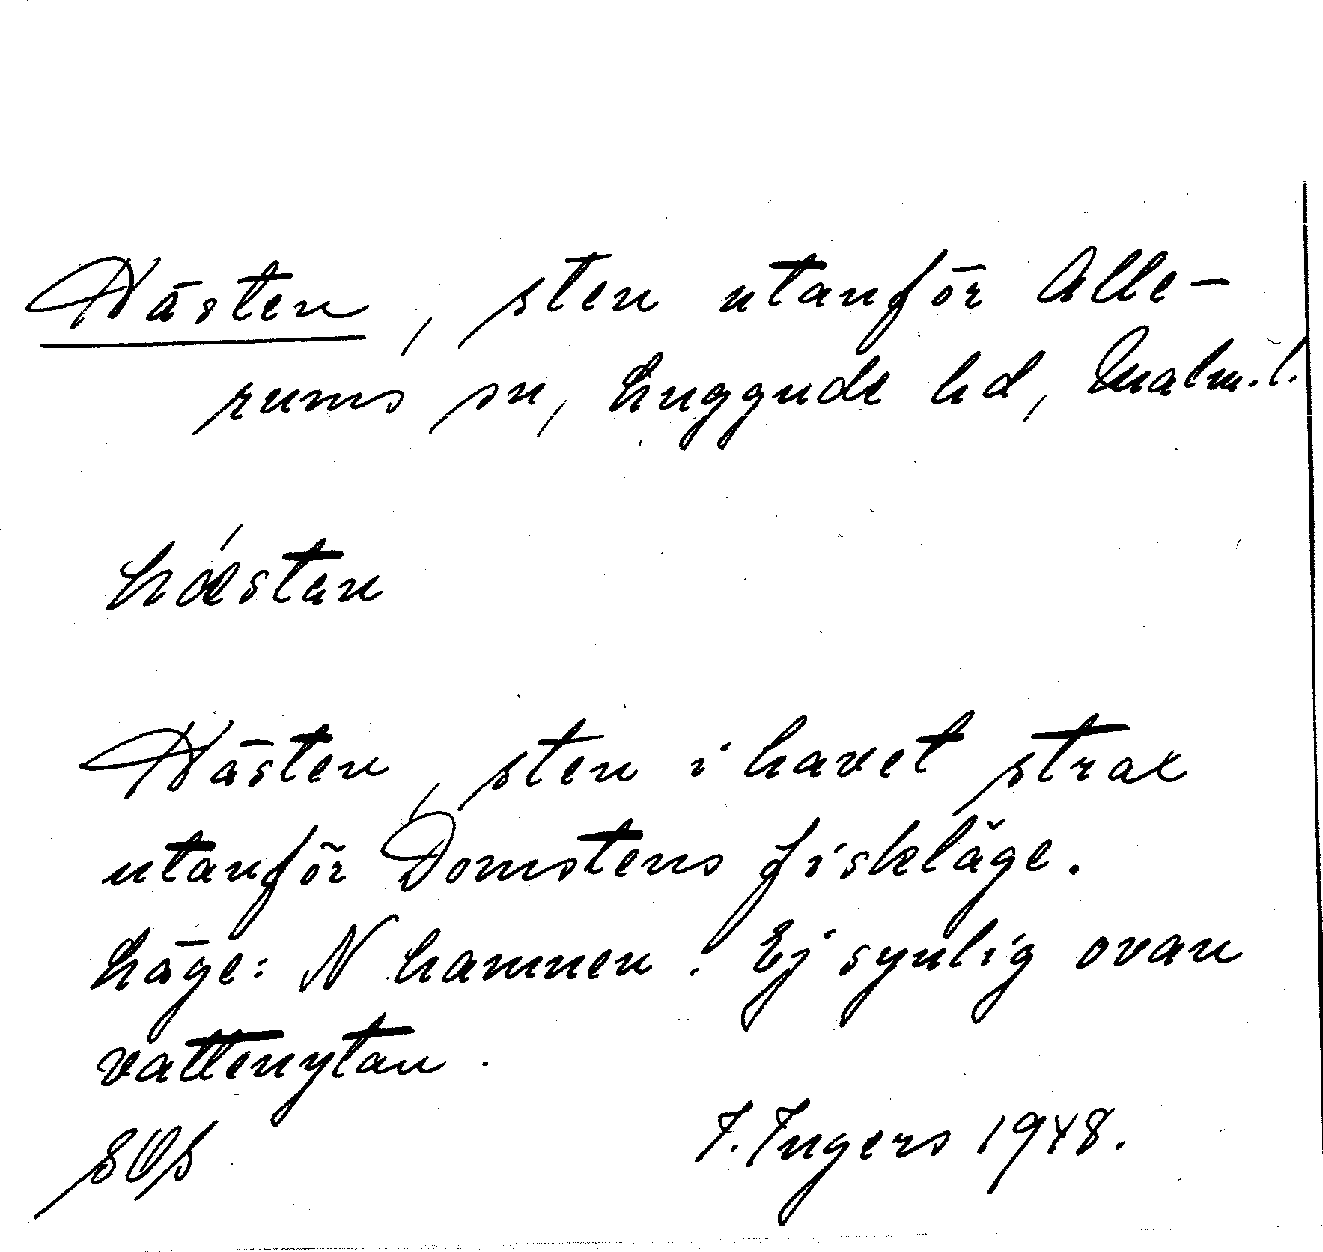 Hästen, sten utanför Alle-
rums sn, Luggude hd, Malm. l.
hǽstan
Hästen, sten i havet strax
utanför Domstens fiskläge.
Läge: N hamnen. Ej synlig ovan
vattenytan.
SOS I. Ingers 1948.